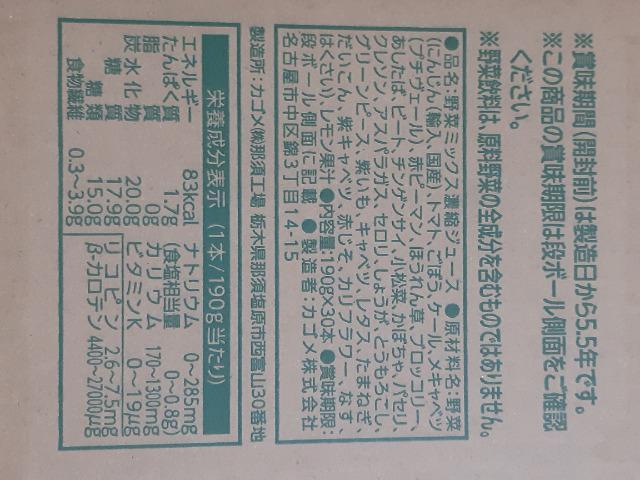 ※賞味期間(開封前)は製造日から5.5年です。
※この商品の賞味期限は段ボール側面をご確認
ください。
※野菜飲料は、原料野菜の全成分を含むものではありません。
●品名:野菜ミックス濃縮ジュース ●原材料名:野菜
(にんじん(輸入、国産)、トマト、ごぼう、ケール、メキャベツ
(プチヴェール)、赤ピーマン、ほうれん草、ブロッコリー、
あしたば、ビート、チンゲンサイ、小松菜、かぼちゃ、パセリ、
クレソン、アスパラガス、セロリ、しょうが、とうもろこし、
グリーンピース、紫いも、キャベツ、レタス、たまねぎ、
だいこん、紫キャベツ、赤じそ、カリフラワー、なす、
はくさい)、レモン果汁 ●内容量:190g×30本 ●賞味期限:
段ボール側面に記載 ●製造者:カゴメ株式会社
名古屋市中区錦3丁目14-15
製造所:カゴメ㈱那須工場 栃木県那須塩原市西富山30番地
栄養成分表示 (1本/190g当たり)
エネルギー 83kcal ナトリウム 0~285mg
たんぱく質 1.7g (食塩相当量 0~0.8g)
脂質 0g カリウム 170~1300mg
炭水化物 20.0g ビタミンK 0~19μg
糖質 17.9g リコピン 2.6~7.5mg
糖類 15.0g β-カロテン 4400~27000μg
食物繊維 0.3~3.9g